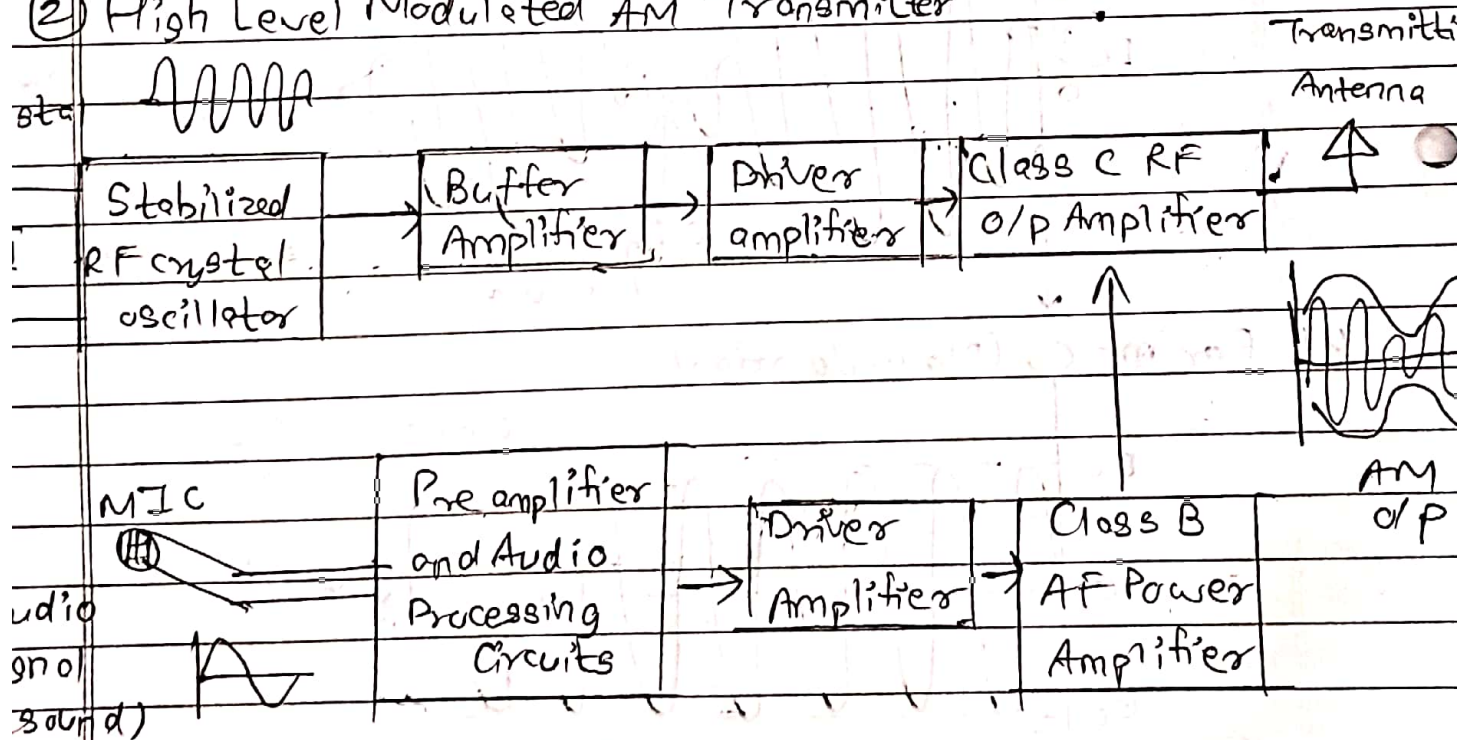 ② High Level Modulated AM Transmitter
Transmitti
Antenna
sta
Stabilized
RF crystal
oscillator
Buffer
Amplifier
Driver
amplifier
Class C RF
o/p Amplifier
MIC
udio
gnal
sound)
Pre amplifier
and Audio
Processing
Circuits
Driver
Amplifier
Class B
AF Power
Amplifier
AM
o/p